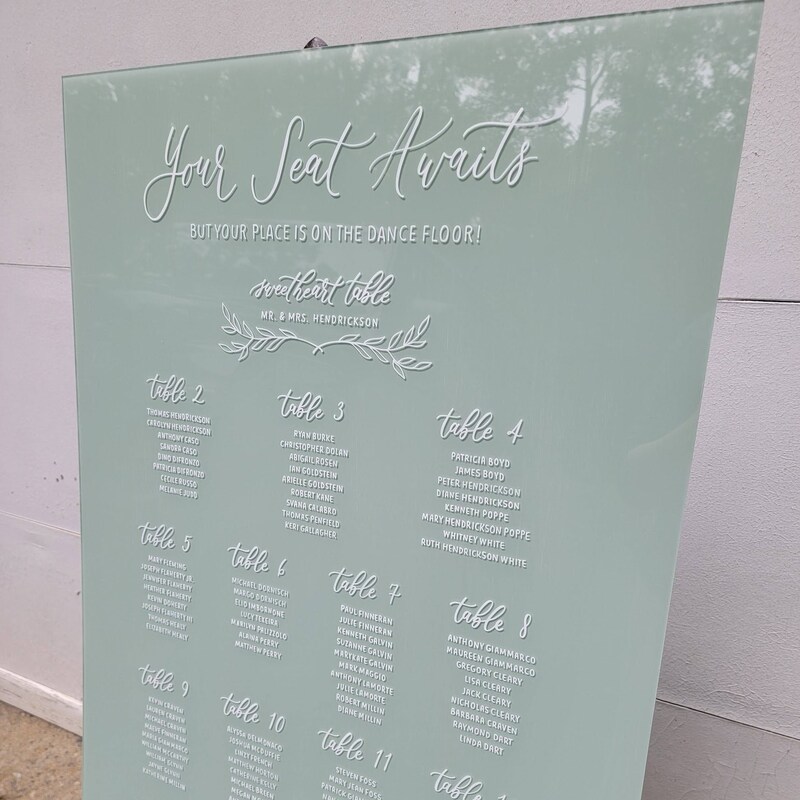 Your Seat Awaits
BUT YOUR PLACE IS ON THE DANCE FLOOR!
sweetheart table
MR. & MRS. HENDRICKSON
table 2
THOMAS HENDRICKSON
CAROLYN HENDRICKSON
ANTHONY CASO
SANDRA CASO
DINO DIFRONZO
PATRICIA DIFRONZO
CECILE RUSSO
MELANIE JUDD
table 3
RYAN BURKE
CHRISTOPHER DOLAN
ABIGAIL ROSEN
IAN GOLDSTEIN
ARIELLE GOLDSTEIN
ROBERT KANE
SVANA CALABRO
THOMAS PENFIELD
KERI GALLAGHER
table 4
PATRICIA BOYD
JAMES BOYD
PETER HENDRICKSON
DIANE HENDRICKSON
KENNETH POPPE
MARY HENDRICKSON POPPE
WHITNEY WHITE
RUTH HENDRICKSON WHITE
table 5
MARY FLEMING
JOSEPH FLAHERTY JR.
JENNIFER FLAHERTY
HEATHER FLAHERTY
KEVIN DOHERTY
JOSEPH FLAHERTY III
THOMAS HEALY
ELIZABETH HEALY
table 6
MICHAEL DORNISCH
MARGO DORNISCH
ELIO IMBORNONE
LUCY TEXEIRA
MARILYN PALIZZOLO
ALAINA PERRY
MATTHEW PERRY
table 7
PAUL FINNERAN
JULIE FINNERAN
KENNETH GALVIN
SUZANNE GALVIN
MARYKATE GALVIN
MARK MAGGIO
ANTHONY LAMORTE
JULIE LAMORTE
ROBERT MILLIN
DIANE MILLIN
table 8
ANTHONY GIAMMARCO
MAUREEN GIAMMARCO
GREGORY CLEARY
LISA CLEARY
JACK CLEARY
NICHOLAS CLEARY
BARBARA CRAVEN
RAYMOND DART
LINDA DART
table 9
KEVIN CRAVEN
LAUREN CRAVEN
MICHAEL CRAVEN
MAEVE FINNERAN
MARIA GIAMMARCO
WILLIAM MCCARTHY
WILLIAM GLYNN
JAYNE GLYNN
KATHERINE MILLIN
table 10
ALYSSA DELMONACO
JOSHUA MCDUFFIE
LINZY FRENCH
MATTHEW HORTON
CATHERINE KELLY
MICHAEL BREEN
MEGAN
table 11
STEVEN FOSS
MARY JEAN FOSS
PATRICK
table